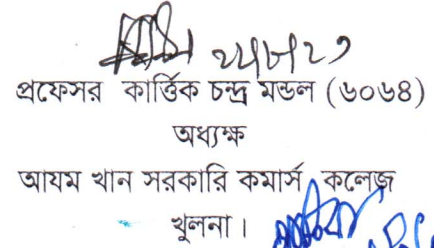 প্রফেসর কার্ত্তিক চন্দ্র মন্ডল (৬০৬৪)
অধ্যক্ষ
আযম খান সরকারি কমার্স কলেজ
খুলনা।